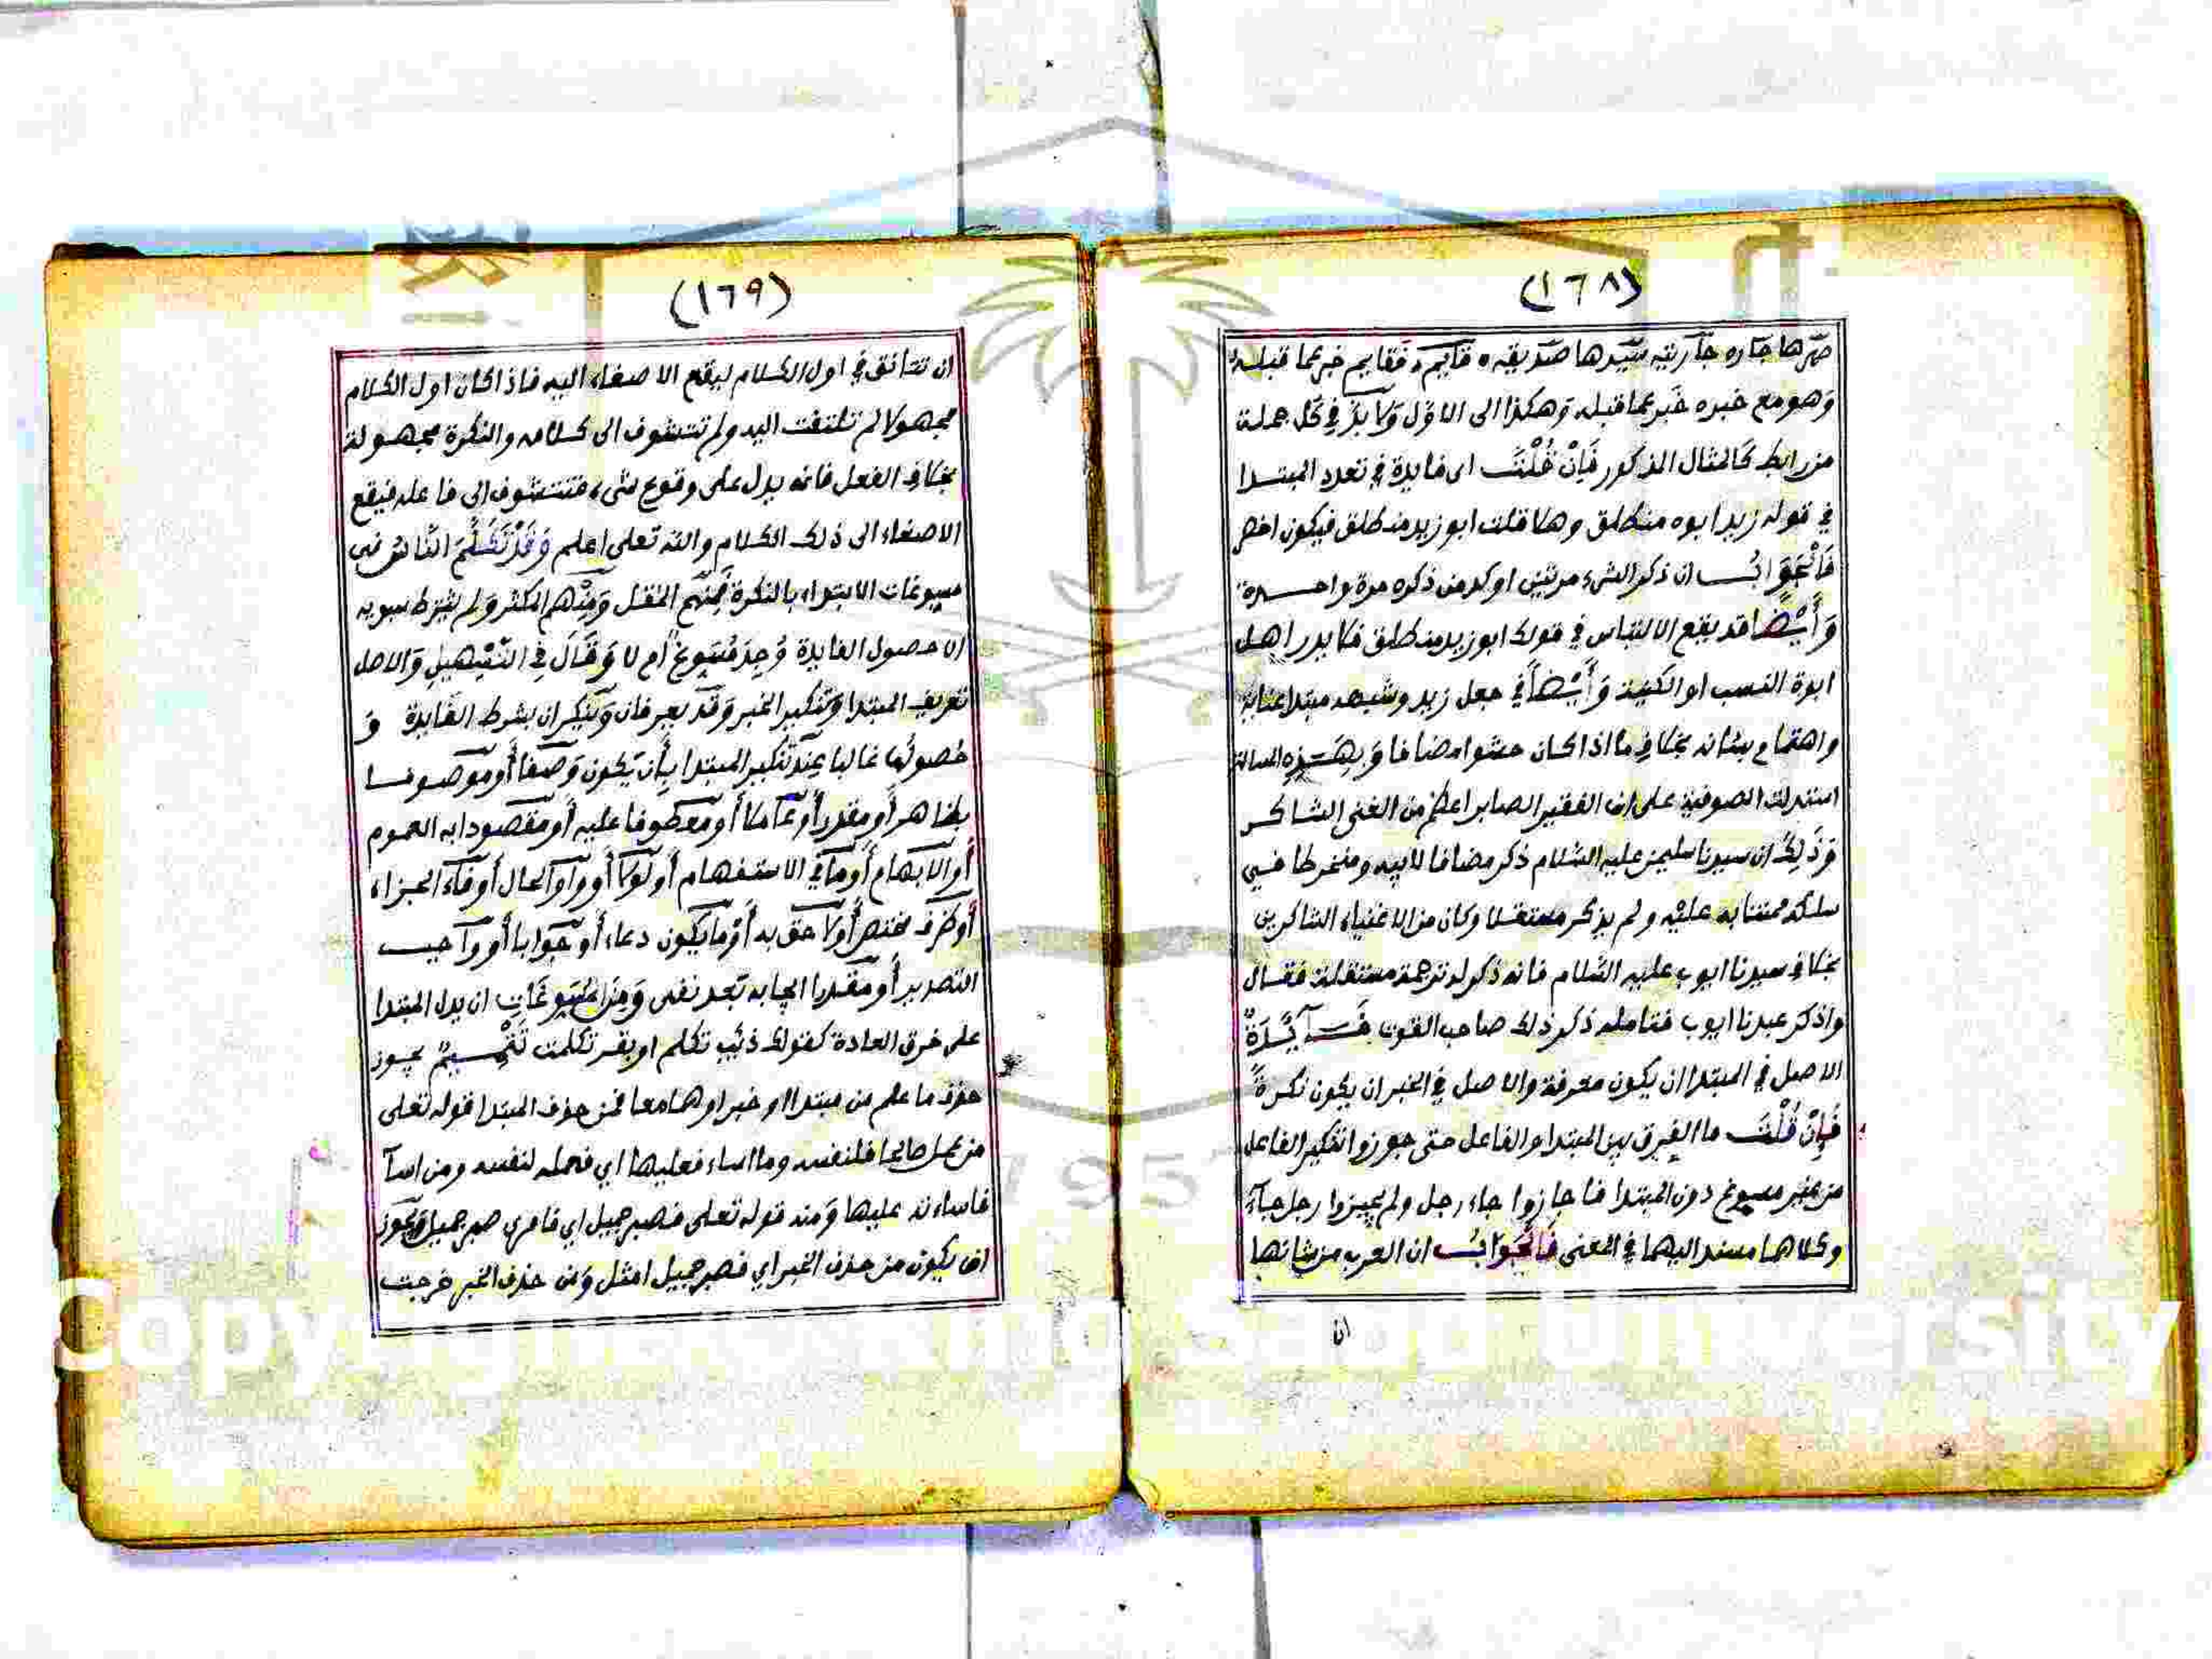 (١٦٨)
صهرها جاره جاريته سيدها صديقه قايم فقايم خبر عما قبله
وهو مع خبره خبر عما قبله وهكذا الى الاول ولا بد في كل جملة
من رابط كالمثال المذكور فَإِنْ قُلْتَ اى فايدة في تعدد المبتدا
في قوله زيد ابوه منطلق وهلا قلت ابو زيد منطلق فيكون اخصر
فَالْجَوَابُ ان ذكر الشيء مرتين اوكد من ذكره مرة واحدة
وَأَيْضًا قد يقع الالتباس في قولك ابو زيد منطلق فلا يدر اهل
ابوة النسب او الكنية وَأَيْضًا في جعل زيد وشبهه مبتدا عناية
واهتمام بشانه بخلاف ما اذا كان حشوا مضافا وَبِهَذِهِ المسالة
استدلت الصوفية على ان الفقير الصابر اعظم من الغنى الشاكر
وَذَلِكَ ان سيدنا سليمن عليه السلام ذكر مضافا لابيه ومنخرطا في
سلكه ممتنا به عليه ولم يذكر مستقلا وكان من الاغنياء الشاكرين
بخلاف سيدنا ايوب عليه السلام فانه ذكر له ترجمة مستقلة فقال
واذكر عبدنا ايوب فتامله ذكر ذلك صاحب القوت فَـآيِدَةٌ
الاصل في المبتدا ان يكون معرفة والاصل في الخبر ان يكون نكرةً
فَإِنْ قُلْتَ ما الفرق بين المبتدا والفاعل حتى جوزوا تنكير الفاعل
من غير مسوغ دون المبتدا فاجازوا جاء رجل ولم يجيزوا رجل جآء
وكلاهما مسند اليهما في المعنى فَالْجَوَابُ ان العرب من شانها
ان
(١٦٩)
ان تتانق في اول الكلام ليقع الاصغاء اليه فاذا كان اول الكلام
مجهولا لم تلتفت اليه ولم تتشوف الى كلامه والنكرة مجهولة
بخلاف الفعل فانه يدل على وقوع شيء فتتشوف الى فاعله فيقع
الاصغاء الى ذلك الكلام والله تعلى اعلم وَقَدْ تَكَلَّمَ النَّاسُ في
مسوغات الابتداء بالنكرة فَمِنْهُم المقل وَمِنْهُم المكثر ولم يشترط سبويه
الا حصول الفايدة وُجِدَ مُسَوِغٌ ام لا وَقَالَ فِي التَّسْهِيلِ وَالاصل
تعريف المبتدا وتنكير الخبر وَقد يعرفان وَينكران بشرط الفايدة وَ
حُصولُها غالبا عِند تنكير المبتدا بِأن يَكون وَصفا أو مَوصوفا
بظاهر أو مقدر أو عاملا أو معطوفا عليه أو مقصودا به العموم
أو الابهام أو تالي الاستفهام أو لولا أو واو الحال أو فاء الجزاء
أو ظرف مختص أو لاحق به أو بأن يكون دعاء أو جوابا أو واجب
التصدير أو مقدرا ايجابه بَعد نفى وَمِنَ المُسَوغَاتِ ان يدل المبتدا
على خرق العادة كقولك ذئب تكلم او بقر تكلمت تَتْمِيمٌ يجوز
حذف ما علم من مبتدا او خبر او هما معا فمن حذف المبتدا قوله تعلى
من عمل صالحا فلنفسه وما اساء فعليها اي فعمله لنفسه ومن اسآ
فاساءته عليها وَمنه قوله تعلى فصبر جميل اي فامري صبر جميل وَيجوز
ان يكون من حذف الخبر اي فصبر جميل امثل وَمن حذف الخبر خرجت
Copyright © King Saud University
1957